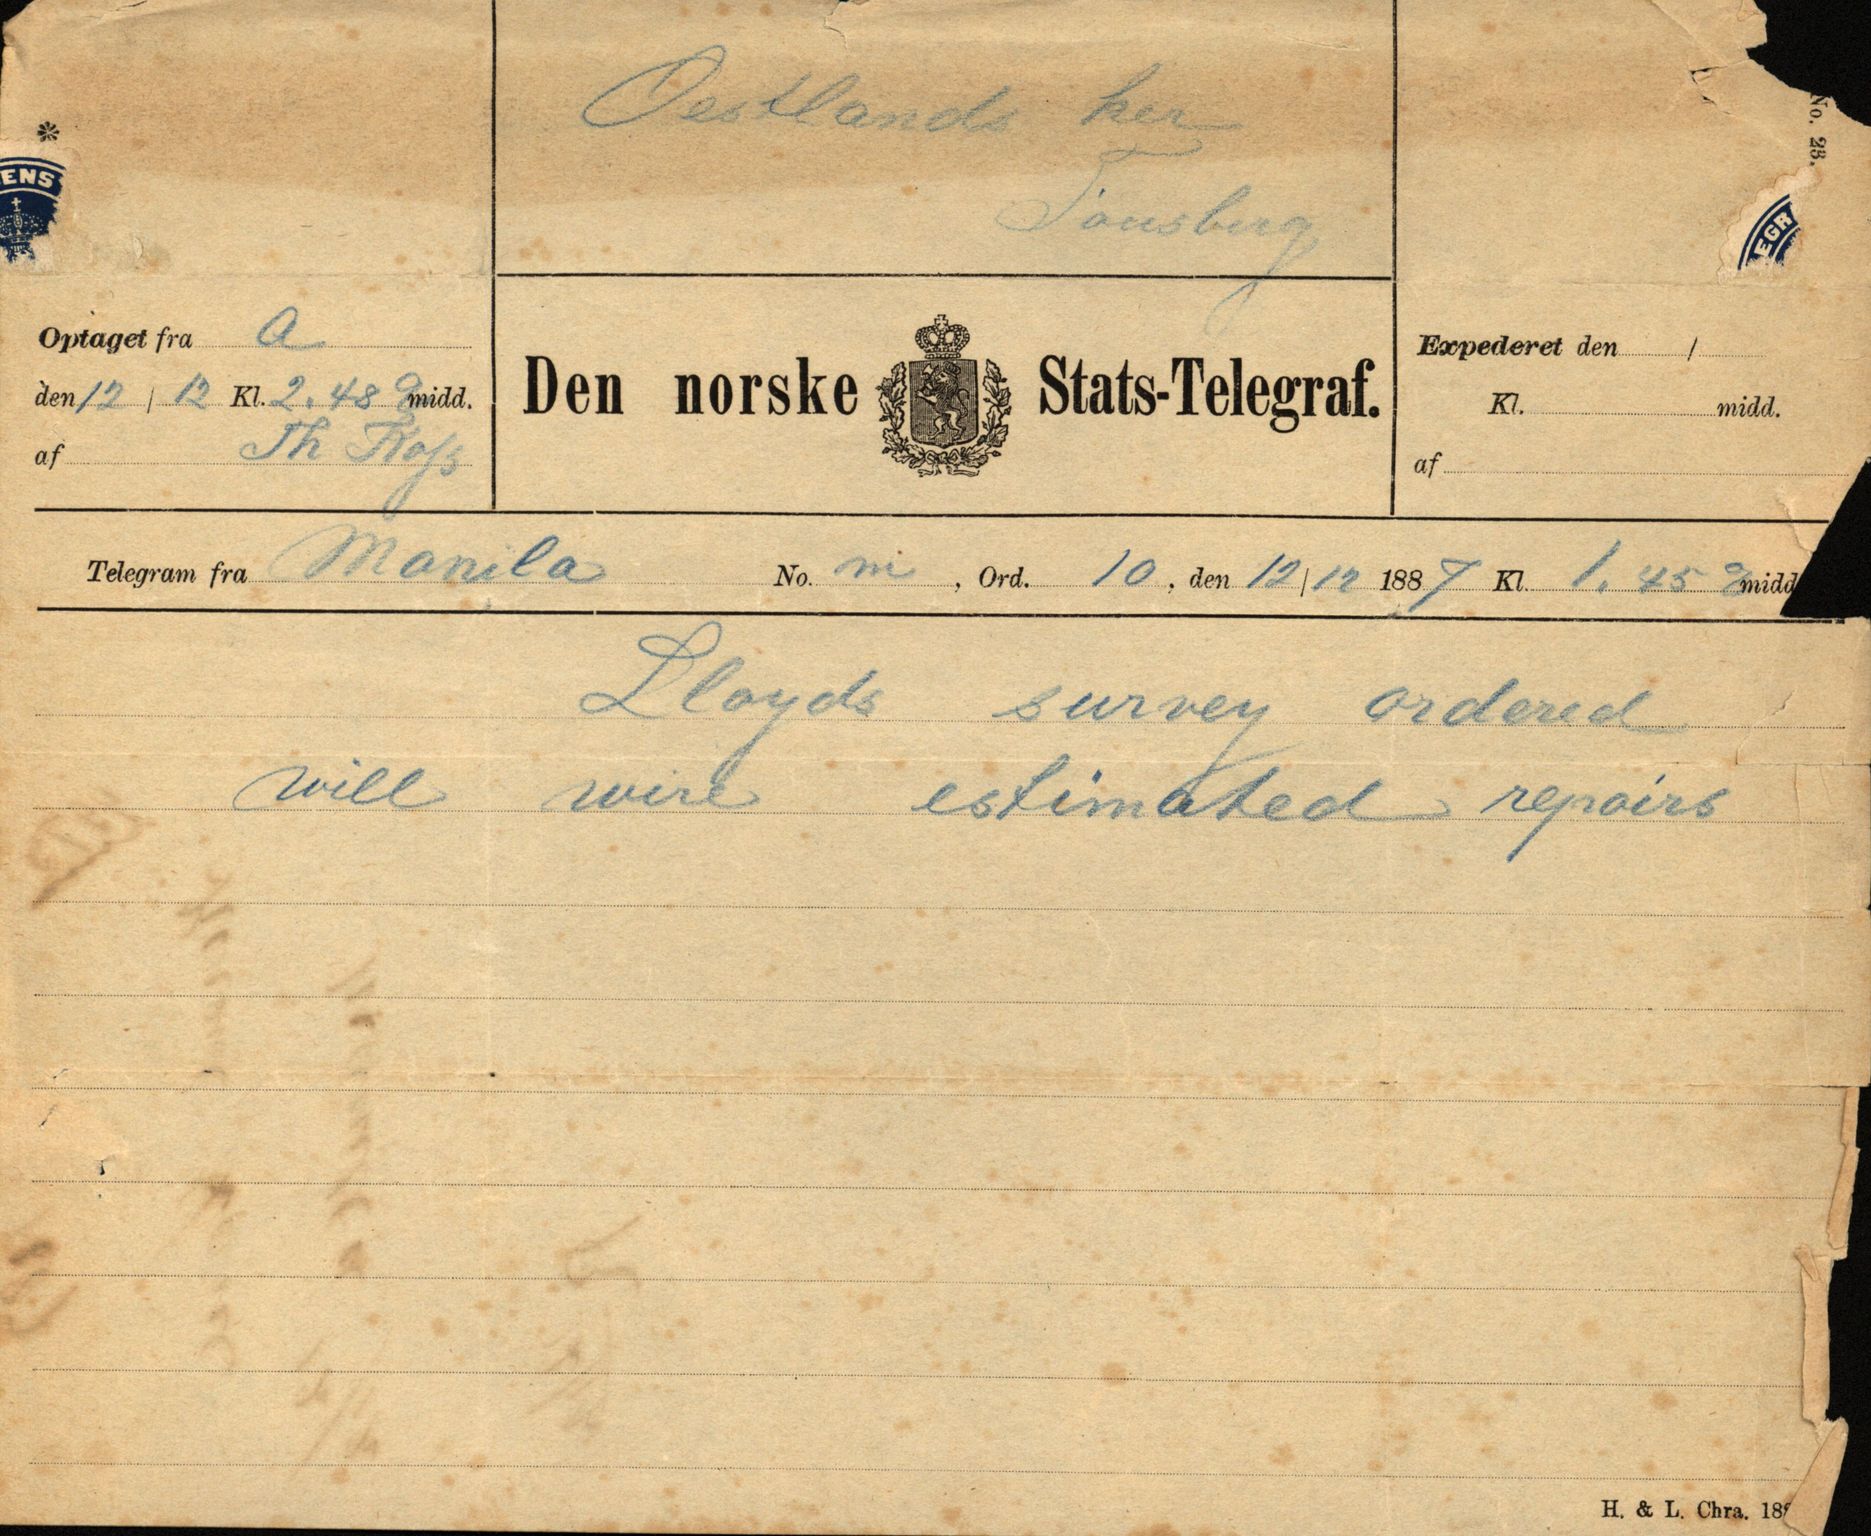 Oestlands her
Tönsberg
No. 23.
ENS
EGR
Optaget fra a
den 12 / 12 Kl. 2.48 e midd.
af Th Foss
Den norske Stats-Telegraf.
Expederet den /
Kl. midd.
af
Telegram fra Manila No. m , Ord. 10 , den 12 / 12 1887 Kl. 1.45 e midd
Lloyds survey ordered
will wire estimated repairs
H. & L. Chra. 188